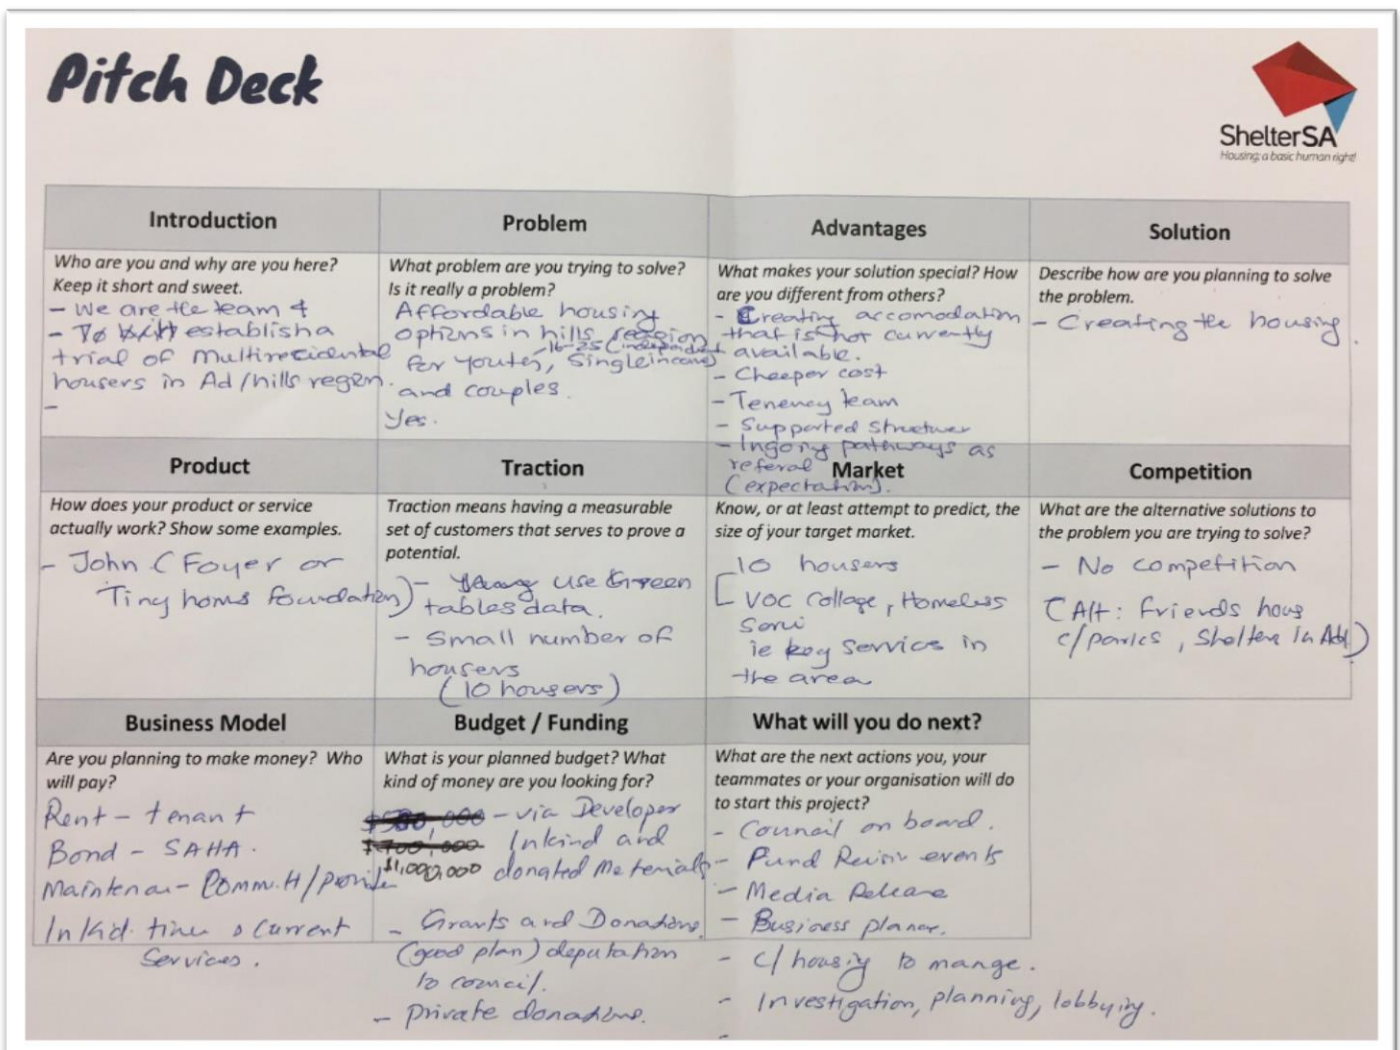 Pitch Deck
ShelterSA
Housing: a basic human right!
Introduction
Who are you and why are you here?
Keep it short and sweet.
- We are the team &
- To establish a
trial of multiresidental
housers in Ad/hills region.
-
Problem
What problem are you trying to solve?
Is it really a problem?
Affordable housing
options in hills region
- 16-25 (independent
for youths, Single income)
and couples.
Yes.
Advantages
What makes your solution special? How
are you different from others?
- Creating accomodation
that is not currently
available.
- Cheeper cost
- Tenency team
- Supported structuer
- Ingoing pathways as
referal
(expectation).
Solution
Describe how are you planning to solve
the problem.
- Creating the housing.
Product
How does your product or service
actually work? Show some examples.
- John C Foyer or
Tiny homs foundation)
Traction
Traction means having a measurable
set of customers that serves to prove a
potential.
- use Green
tables data.
- Small number of
housers
(10 housers)
Market
Know, or at least attempt to predict, the
size of your target market.
10 housers
VOC Collage, Homeless
ie key service in
the area
Competition
What are the alternative solutions to
the problem you are trying to solve?
- No competition
(Alt: friends hous
c/parks, Shelters in Adl)
Business Model
Are you planning to make money? Who
will pay?
Rent - tenant
Bond - SAHA.
Maintenan - Comm.H/
In Kid. time current
Services.
Budget / Funding
What is your planned budget? What
kind of money are you looking for?
$500,000 - via Developer
$700,000 Inkind and
$1,000,000 donated Meterials
- Grants and Donations.
(good plan) deputation
to council.
- private donations.
What will you do next?
What are the next actions you, your
teammates or your organisation will do
to start this project?
- Council on board.
- Fund Raisin events
- Media Release
- Business planer.
- c/housig to mange.
- Investigation, planning, lobbying.
-